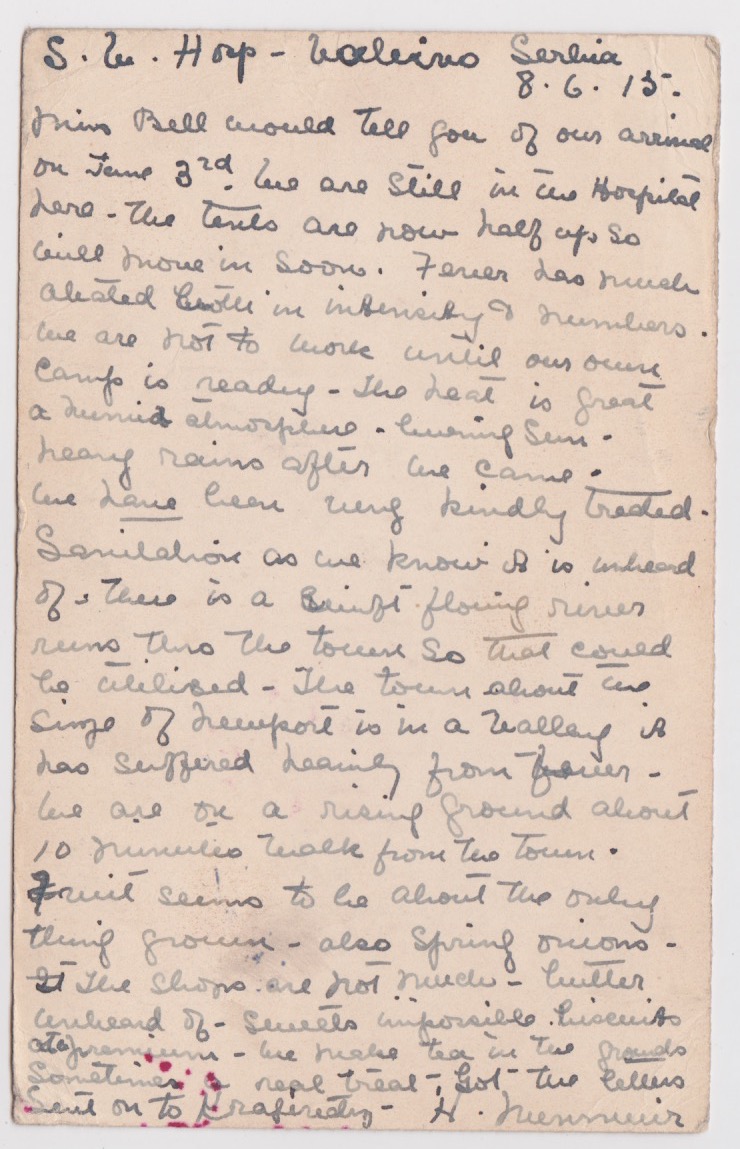 S. W. Hosp - Valievo Serbia
8. 6. 15.
Miss Bell would tell you of our arrival
on June 3rd. We are still in the Hospital
here - The tents are now half up so
will move in soon. Fever has much
abated both in intensity & numbers.
We are not to work until our own
Camp is ready - The heat is great
a humid atmosphere - burning Sun -
heavy rains after we came.
We have been very kindly treated.
Sanitation as we know it is unheard
of. There is a swift flowing river
runs thro the town so that could
be utilised - The town about the
size of Newport is in a Valley it
has suffered heavily from fever -
We are on a rising ground about
10 minutes walk from the town.
Fruit seems to be about the only
thing grown - also Spring onions -
The shops are not much - butter
unheard of - sweets impossible. biscuits
at premium - we make tea in the grounds
Sometimes a real treat - Got the letters
Sent on to - H.